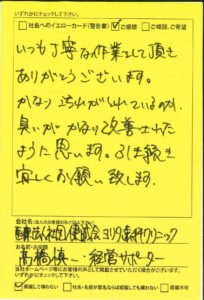 いずれかにチェックして下さい。
□社長へのイエローカード(警告書) ☑ご感想 □ご相談、ご希望
いつも丁寧な作業をして頂き
ありがとうございます。
かなり汚れがしれているのか、
臭いがかなり改善された
ように思います。引き続き
宜しくお願い致します。
会社名(法人のお客様のみご記入下さい)
医療法人社団
クリニック
お名前・お役職
髙橋慎一 経営サポーター
当社ホームページ等にお客様の声として掲載させていただく場合がございます。
いずれかにチェックして下さい。
☑掲載して構わない □社名・名前が匿名ならば掲載しても構わない □掲載不可